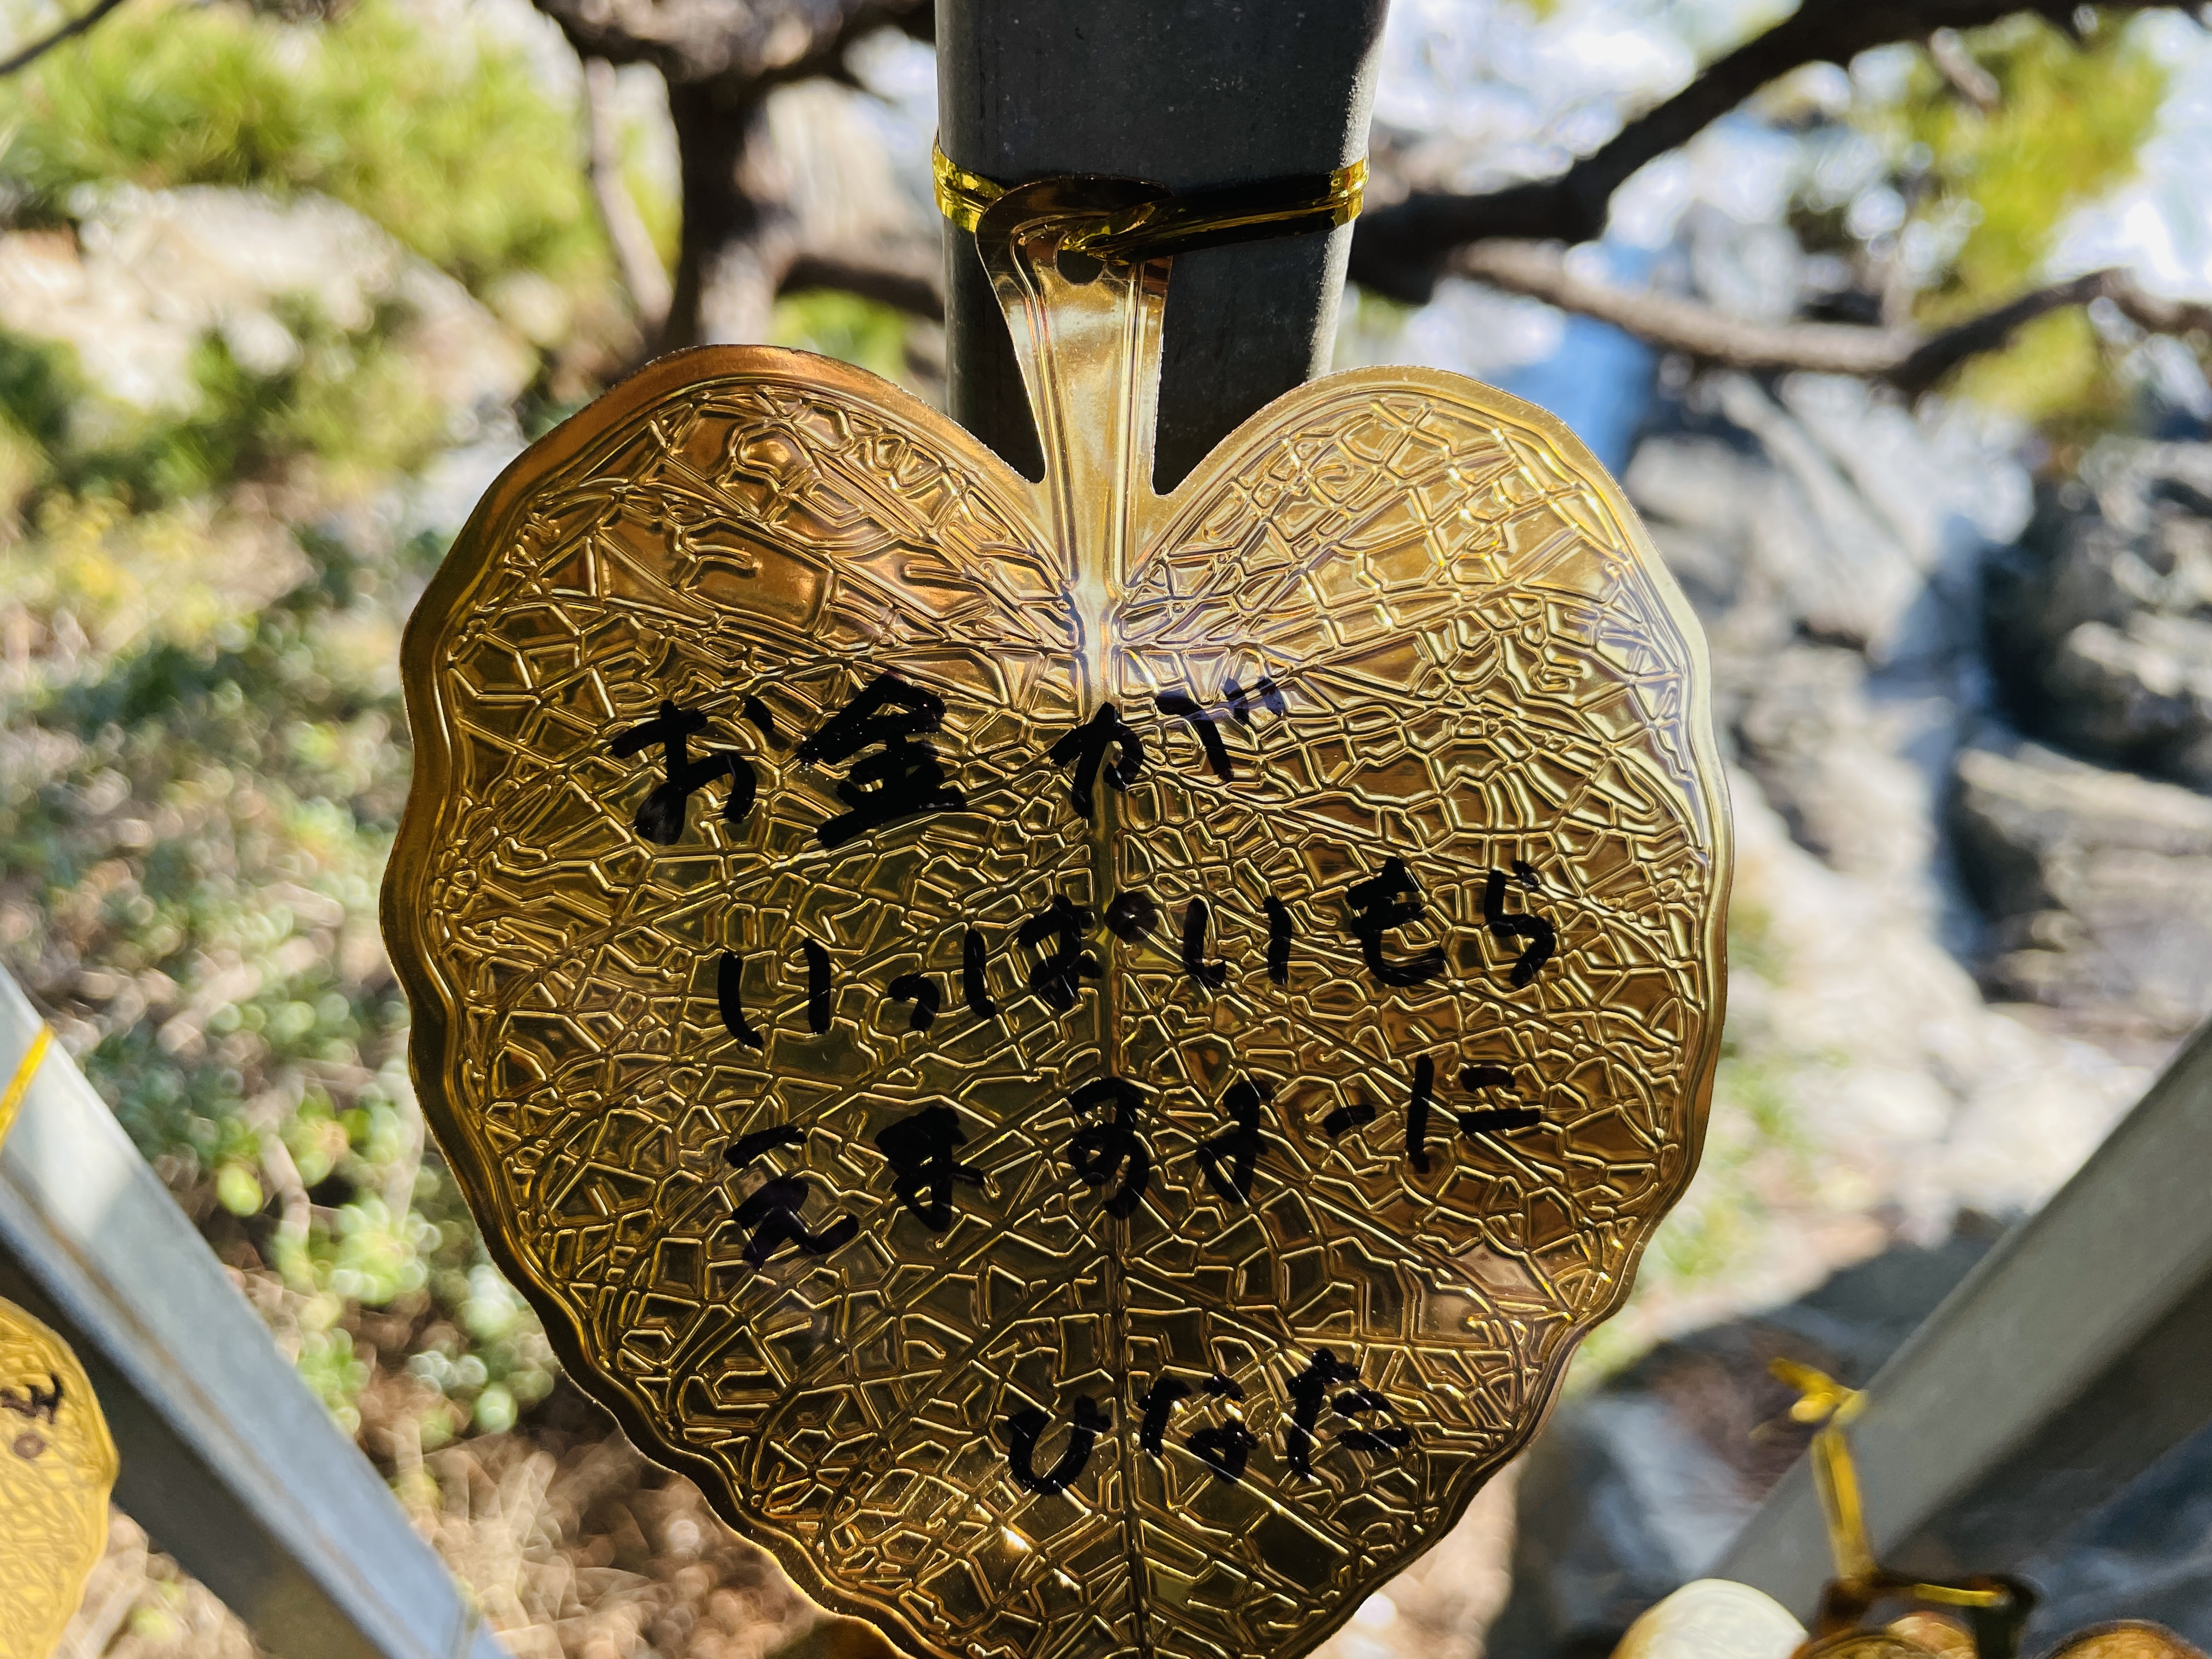 お金が
いっぱいもら
えますよーに
ひなた